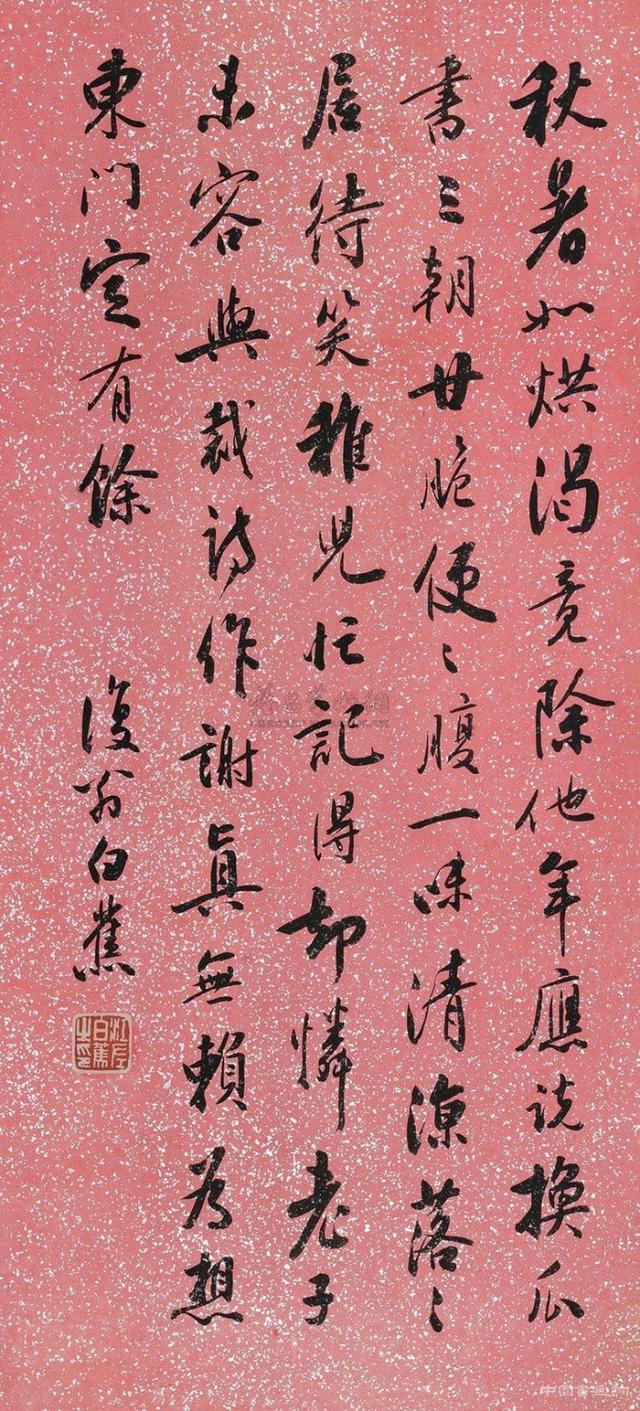 秋暑如烘渴竟除他年應説換瓜
書三朝甘脆便〻腹一味清涼落〻
居待笑稚兒忙記得却憐老子
未容與裁詩作謝真無賴為想
東門定有餘
復翁白蕉